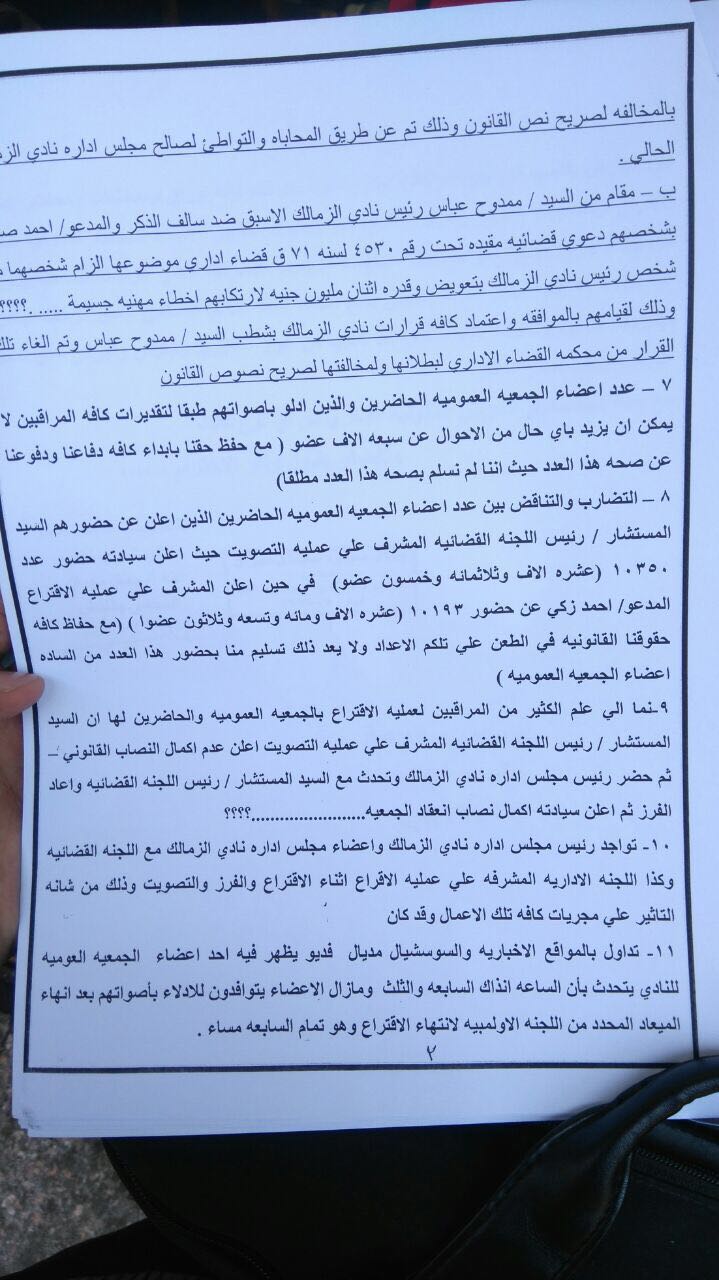 بالمخالفه لصريح نص القانون وذلك تم عن طريق المحاباه والتواطئ لصالح مجلس اداره نادي
الحالي .
ب – مقام من السيد / ممدوح عباس رئيس نادي الزمالك الاسبق ضد سالف الذكر والمدعو/ احمد
بشخصهم دعوي قضائيه مقيده تحت رقم ٤٥٣٠ لسنه ٧١ ق قضاء اداري موضوعها الزام شخصهما
شخص رئيس نادي الزمالك بتعويض وقدره اثنان مليون جنيه لارتكابهم اخطاء مهنيه جسيمة ..... .؟؟؟؟
وذلك لقيامهم بالموافقه واعتماد كافه قرارات نادي الزمالك بشطب السيد / ممدوح عباس وتم الغاء
القرار من محكمه القضاء الاداري لبطلانها ولمخالفتها لصريح نصوص القانون
٧ – عدد اعضاء الجمعيه العموميه الحاضرين والذين ادلو باصواتهم طبقا لتقديرات كافه المراقبين لا
يمكن ان يزيد باي حال من الاحوال عن سبعه الاف عضو ( مع حفظ حقنا بابداء كافه دفاعنا ودفوعنا
عن صحه هذا العدد حيث اننا لم نسلم بصحه هذا العدد مطلقا)
٨ – التضارب والتناقض بين عدد اعضاء الجمعيه العموميه الحاضرين الذين اعلن عن حضورهم السيد
المستشار / رئيس اللجنه القضائيه المشرف علي عمليه التصويت حيث اعلن سيادته حضور عدد
١٠٣٥٠ (عشره الاف وثلاثمائه وخمسون عضو) في حين اعلن المشرف علي عمليه الاقتراع
المدعو/ احمد زكي عن حضور ١٠١٩٣ (عشره الاف ومائه وتسعه وثلاثون عضوا ) (مع حفاظ كافه
حقوقنا القانونيه في الطعن علي تلكم الاعداد ولا يعد ذلك تسليم منا بحضور هذا العدد من الساده
اعضاء الجمعيه العموميه )
٩ـنما الي علم الكثير من المراقبين لعمليه الاقتراع بالجمعيه العموميه والحاضرين لها ان السيد
المستشار / رئيس اللجنه القضائيه المشرف علي عمليه التصويت اعلن عدم اكمال النصاب القانوني –
ثم حضر رئيس مجلس اداره نادي الزمالك وتحدث مع السيد المستشار / رئيس اللجنه القضائيه واعاد
الفرز ثم اعلن سيادته اكمال نصاب انعقاد الجمعيه........................؟؟؟؟
١٠- تواجد رئيس مجلس اداره نادي الزمالك واعضاء مجلس اداره نادي الزمالك مع اللجنه القضائيه
وكذا اللجنه الاداريه المشرفه علي عمليه الاقراع اثناء الاقتراع والفرز والتصويت وذلك من شانه
التاثير علي مجريات كافه تلك الاعمال وقد كان
١١- تداول بالمواقع الاخباريه والسوسشيال مديال فديو يظهر فيه احد اعضاء الجمعيه العوميه
للنادي يتحدث بأن الساعه انذاك السابعه والثلث ومازال الاعضاء يتوافدون للادلاء بأصواتهم بعد انهاء
الميعاد المحدد من اللجنه الاولمبيه لانتهاء الاقتراع وهو تمام السابعه مساء .
٢